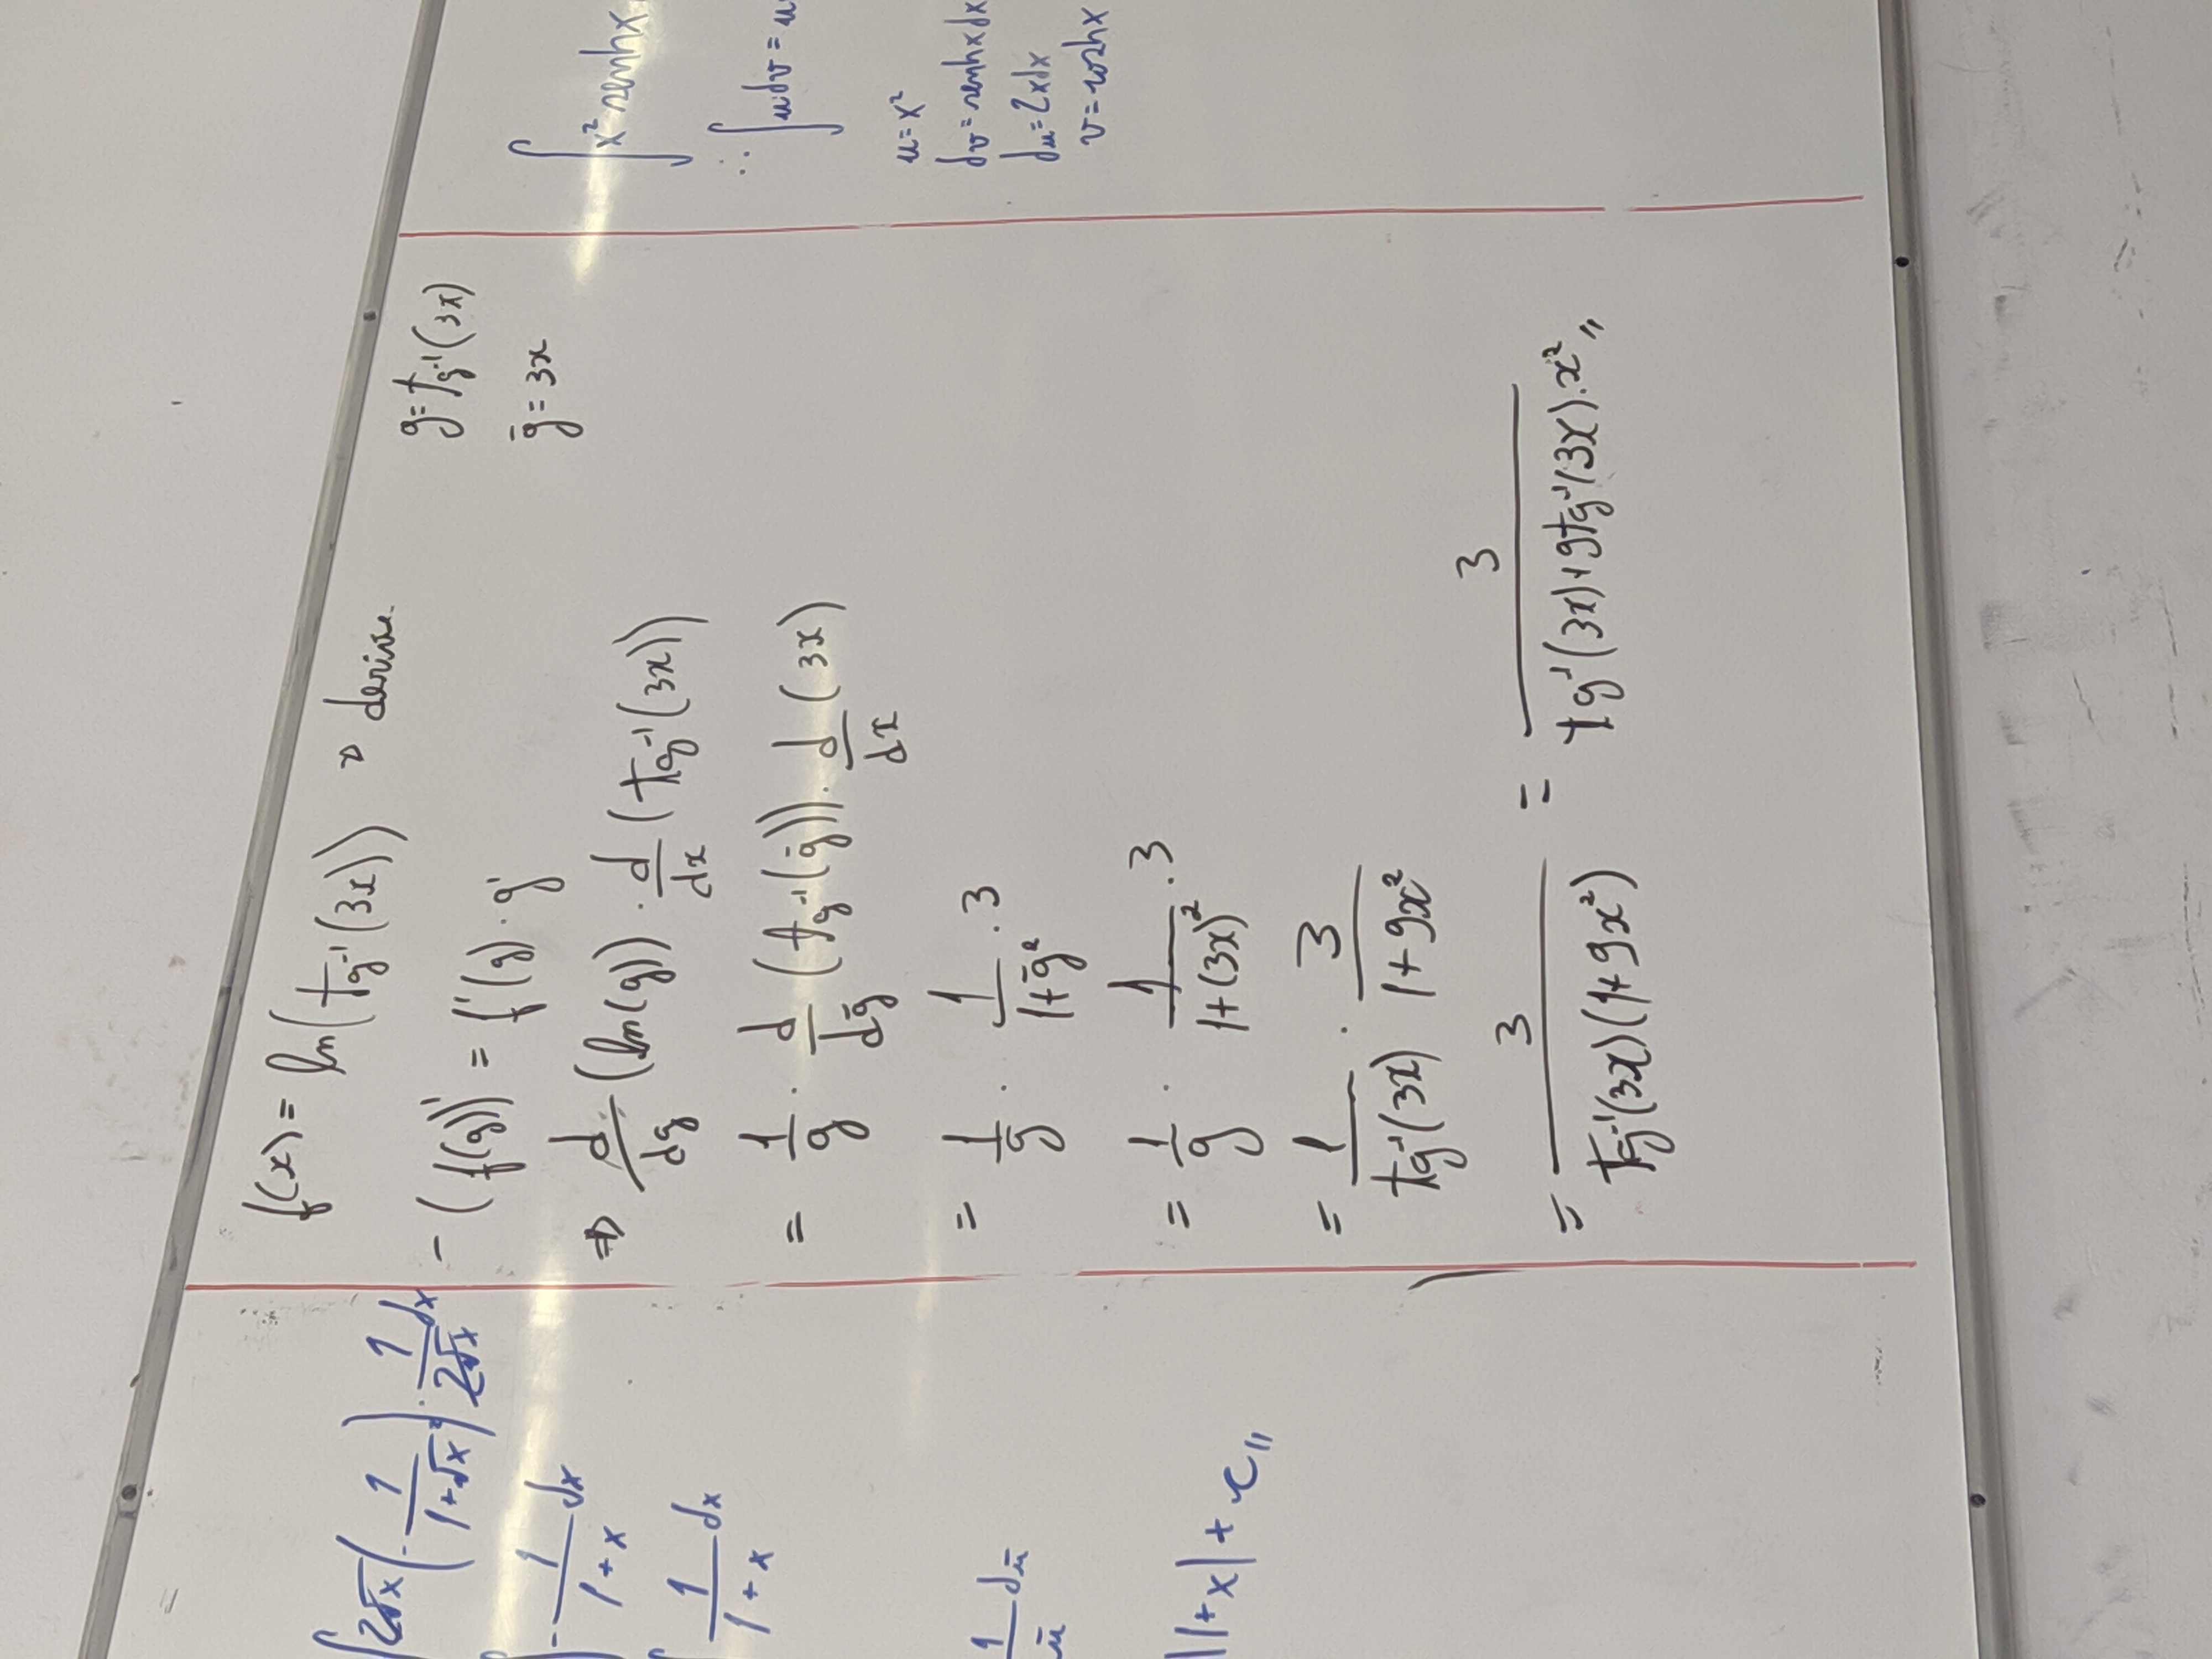 ∫2√x(-1/(1+√x²))·1/(2√x)dx
∫-1/(1+x)dx
∫1/(1+x)dx
1/ū dū
|1+x|+c,,
f(x)=ln(tg⁻¹(3x)) ⇒ derive.
g=tg⁻¹(3x)
ḡ=3x
-(f(g))'=f'(g)·g'
⇒ d/dg(ln(g))·d/dx(tg⁻¹(3x))
= 1/g·d/dḡ(tg⁻¹(ḡ))·d/dx(3x)
= 1/g·1/(1+ḡ²)·3
= 1/g·1/(1+(3x)²)·3
= 1/tg⁻¹(3x)·3/(1+9x²)
= 3/(tg⁻¹(3x)(1+9x²)) = 3/(tg⁻¹(3x)+9tg⁻¹(3x).x²),,
∫x² senhx
∴∫udv=u
u=x²
dv=senhxdx
du=2xdx
v=coshx